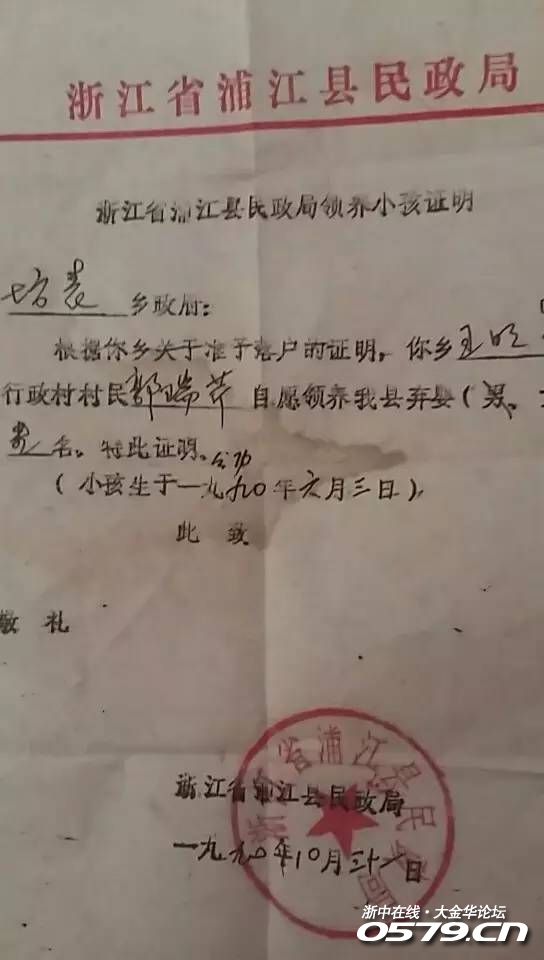 浙江省浦江县民政局
浙江省浦江县民政局领养小孩证明
乡政府：
根据你乡关于准予落户的证明，你乡王明
行政村村民郭瑞芹自愿领养我县弃婴（男、
名。特此证明。
（小孩生于一九九〇年六月三日）
此致
敬礼
浙江省浦江县民政局
浙江省浦江县民政局
一九九〇年10月三十一日
浙中在线·大金华论坛
0579.CN